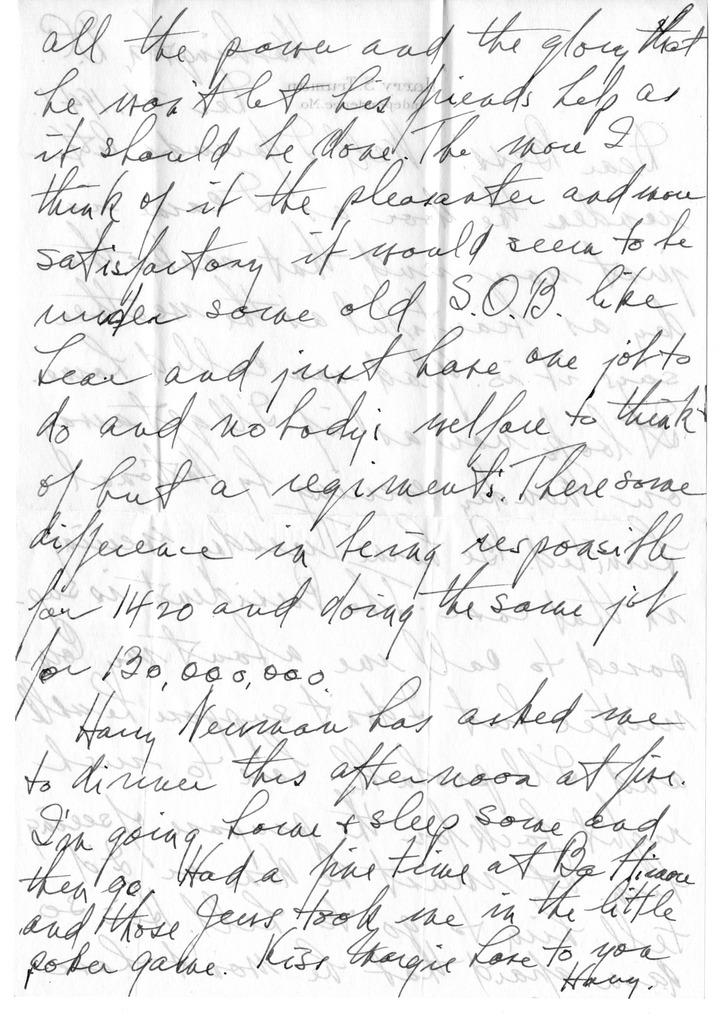 all the power and the glory that
he won't let his friends help as
it should be done. The more I
think of it the pleasanter and more
satisfactory it would seem to be
under some old S.O.B. like
Lear and just have one job to
do and nobody's welfare to think
of but a regiment's. There some
difference in being responsible
for 1420 and doing the same job
for 130,000,000.
Harry Newman has asked me
to dinner this afternoon at five.
I'm going home & sleep some and
then go. Had a fine time at Baltimore
and those Jews took me in the little
poker game. Kiss Margie love to you
Harry.